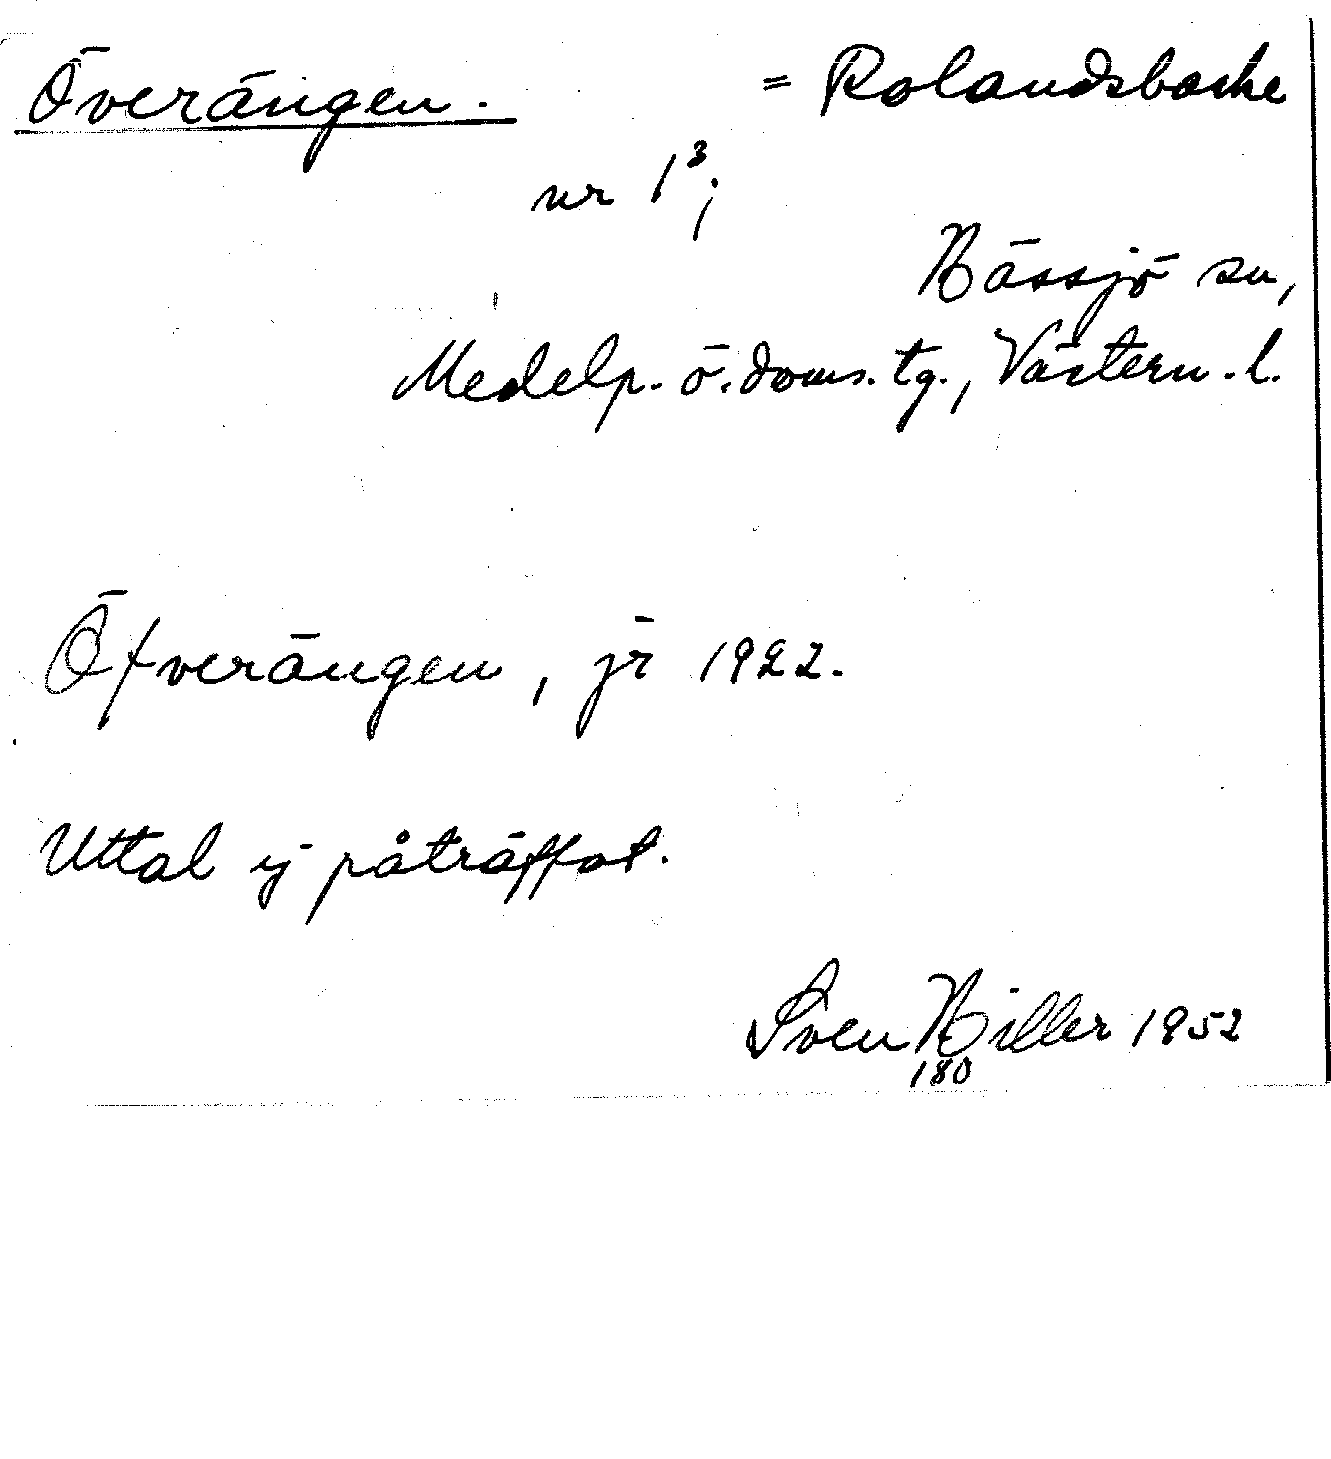 Överängen. = Rolandsbacke
nr 1³;
Hässjö sn,
Medelp. ö. doms. tg., Västern. l.
Öfverängen, jr 1922.
Uttal ej påträffat.
Sven Hiller 1952
180